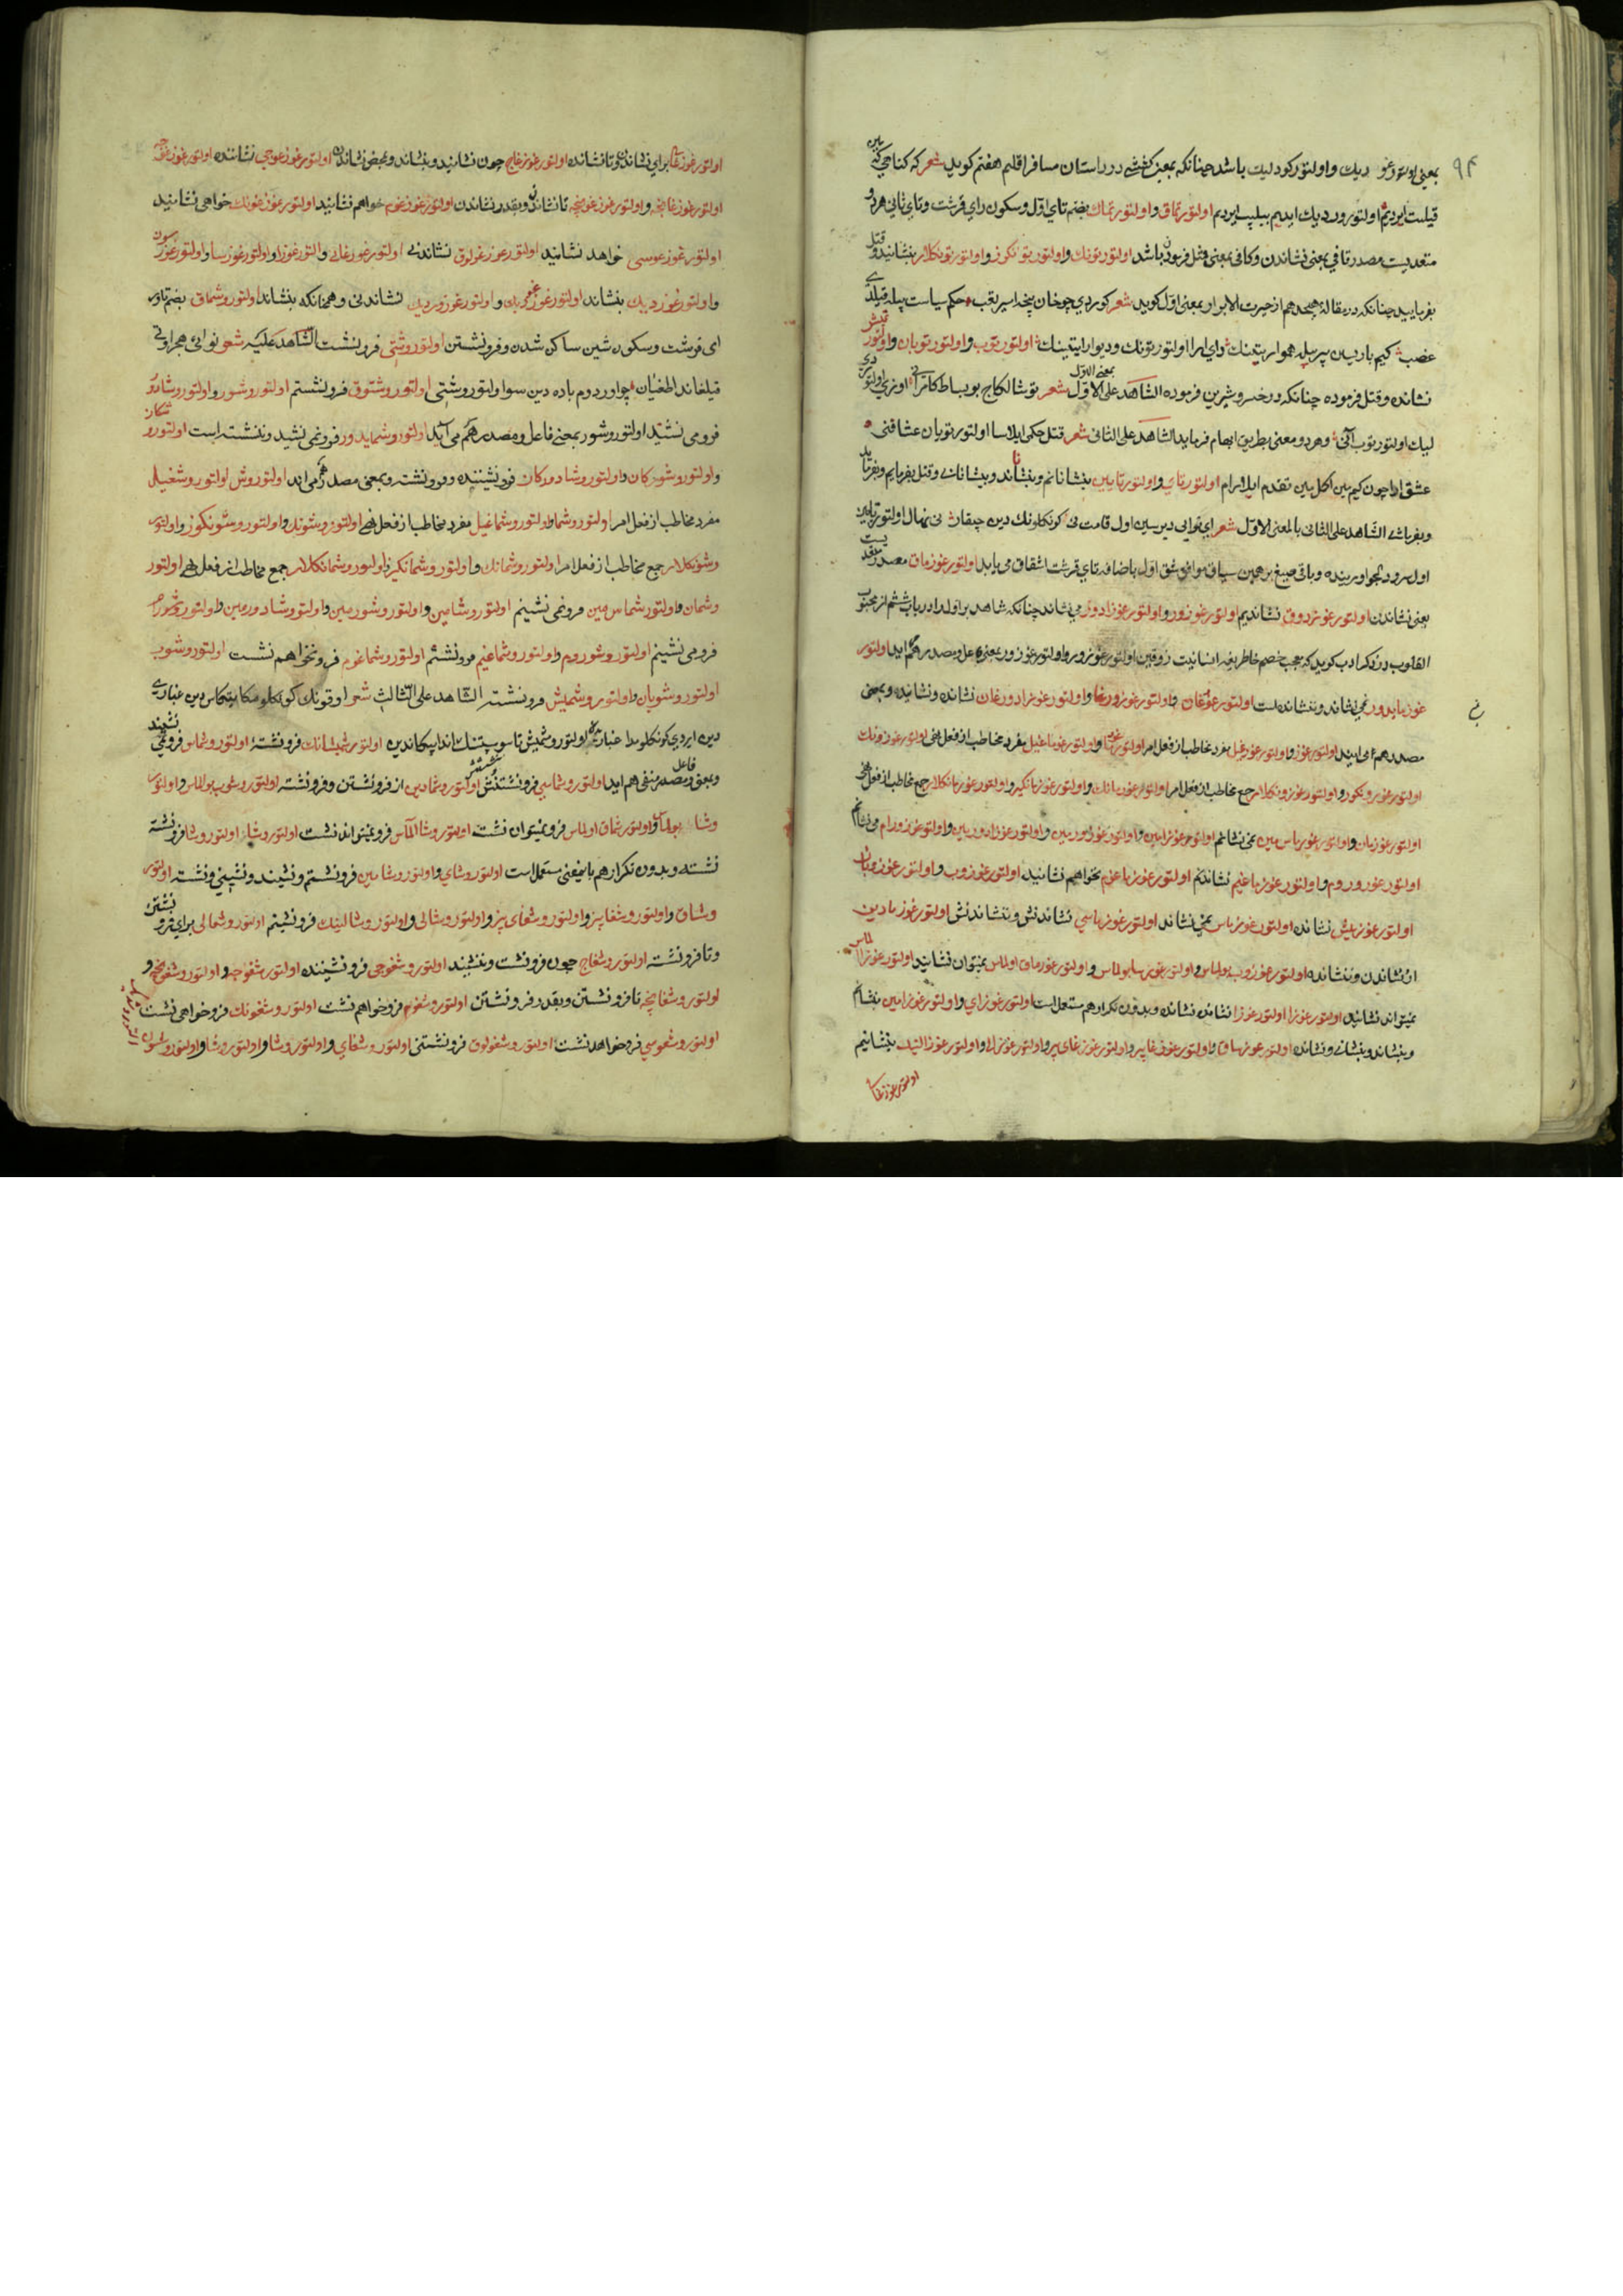 ۹۴
بمعنی اولتورغو دیك و اولتورکودلیك باشد چنانکه بمعنی کشتنی در داستان مسافر اقلیم هفتم کوید شعر که کناهی که
قیلیت ایردیم اولتورورن دیك ایدیم بیلیپ ایردیم اولتورتماق و اولتورتماك بضم تای اوّل و سکون رای قرشت و تای ثانی هر دو
متعدیست مصدر تافی بمعنی نشاندن و کافی بمعنی قتل فرمودن باشد اولتورتونك و اولتورتونکوز و اولتورتونکلار بنشانید و قتل
بفرمایید چنانکه در مقالهٔ هیجدهم از حیرت الابرار بمعنی اوّل کوید شعر کوردی چو خان پنجه اسیر تعب حکم سیاست بیله قیلدی
غضب کیم باریسین بیر بیله هموار ایتینك دای ارا اولتورتونك و دیوار ایتینك اولتورتوب و اولتورتوبان و اولتور
نشانده و قتل فرموده چنانکه در خسرو شیرین فرموده الشاهد علی الاوّل بمعنی الاوّل شعر توشالکاج بو بساط کامرانی اوزری اولتو
لیك اولتورتوب آنی و هر دو معنی بطریق ابهام فرماید الشاهد علی الثانی شعر قتل حکمی ایلاسا اولتورتوبان عشاقنی
عشق ارا چون کیم مین اکل مین تقدم ایلارام اولتورتای و اولتورتایین بنشانانم و بنشاند و بنشانانی و قتل بفرمایم و بفرماید
و بفرمائی الشاهد علی الثانی بالمعنی الاوّل شعر ای نوایی دیرسین اول قامت نی کونکلونك دین چیقار نی نهال اولتورتایین
اول سرو دلجو اورنیده و باقی صیغ بر همین سیاق موافق شق اوّل باضافه تای قرشت اشتقاق می یابد اولتورغوزماق مصدر متعدیست
یعنی نشاندن اولتورغوزدوق نشاندیم اولتورغوزور و اولتورغوزادور می نشاند چنانکه شاهد بر اولدادر باب ششم از محبوب
القلوب در ذکر ادب کوید که محب خصم خاطریغه انسانیت ذوقین اولتورغوزور و اولتورغوزور بمعنی فاعل و مصدر هم آید اولتور
غوزمایدور نمی نشاند و ننشانده است اولتورغوزغان و اولتورغوزورغا و اولتورغوزادورغان نشانده و نشانیده و بمعنی
مصدر هم می آید اولتورغوز و اولتورغوزغیل مفرد مخاطب از فعل امر اولتورغوزما و اولتورغوزماغیل مفرد مخاطب از فعل نهی اولتورغوزونك
اولتورغوزونکوز و اولتورغوزونکلار جمع مخاطب از فعل امر اولتورغوزمانك و اولتورغوزمانکیز و اولتورغوزمانکلار جمع مخاطب از فعل نهی
اولتورغوزمان و اولتورغوزماس مین نمی نشانم اولتورغوزامین و اولتورغوزورمین و اولتورغوزادورمین و اولتورغوزورام می نشانم
اولتورغوزوروم و اولتورغوزماغیم نشاندم اولتورغوزماغوم نخواهم نشانید اولتورغوزوب و اولتورغوزوبان
اولتورغوزمیش نشانده اولتورغوزماس نمی نشاند اولتورغوزماسی نشاندنش و ننشاندنش اولتورغوزمادین
از نشاندن و ننشانده اولتورغوزوب بولماس و اولتورغوزسا بولماس و اولتورغوزماق اولماس نمیتوان نشانید اولتورغوزا الماس
نمیتواند نشانید اولتورغوزا اولتورغوزا نشانده نشانده و بدون تکرار هم مستعمل است اولتورغوزای و اولتورغوزامین بنشانم
و بنشاند و بنشانی و نشانده اولتورغوزساق و اولتورغوزغایبیز و اولتورغوزغای بیز و اولتورغوزالی و اولتورغوزالینك بنشانیم
اولتورغوزغالی
اولتورغوزغالی برای نشاندن و تا نشانده اولتورغوزغاج چون نشانید و بنشاند و بمحض نشاندن اولتورغوزغوچی نشاننده اولتورغوزغوچه
اولتورغوزغانچه و اولتورغوزغونچه تا نشاندن و بقدر نشاندن اولتورغوزغوم خواهم نشانید اولتورغوزغونك خواهی نشانید
اولتورغوزغوسی خواهد نشانید اولتورغوزغولوق نشاندنی اولتورغوزغالی و اولتورغوزا و اولتورغوزسا و اولتورغوزسون
و اولتورغوزدیك بنشاند اولتورغوزغودیك و اولتورغوزوردیك نشاندنی و همانکه بنشاند اولتوروشماق بضم تا و رای
ای قرشت و سکون شین ساکن شدن و فرو نشستن اولتوروشتی فرو نشست الشّاهد علیه شعر نوائی هجر اوتی
قیلغاندا طغیان چو اوردوم باده دین سو اولتوروشتی اولتوروشتوق فرو نشستم اولتوروشور و اولتوروشادور
فرو می نشیند اولتوروشور بمعنی فاعل و مصدر هم می آید اولتوروشمایدور فرو نمی نشیند و ننشسته است اولتورو شکان
و اولتوروشورکان و اولتوروشادورکان فرو نشیننده و فرو نشسته و بمعنی مصدر هم می اید اولتوروش اولتوروشغیل
مفرد مخاطب از فعل امر اولتوروشما و اولتوروشماغیل مفرد مخاطب از فعل نهی اولتوروشونك و اولتوروشونکوز و اولتورو
وشونکلار جمع مخاطب از فعل امر اولتوروشمانك و اولتوروشمانکیز و اولتوروشمانکلار جمع مخاطب از فعل نهی اولتور
وشمان و اولتوروشماس مین فرو نمی نشینم اولتوروشامین و اولتوروشورمین و اولتوروشادورمین و اولتوروشورام
فرو می نشینم اولتوروشوروم و اولتوروشماغیم فرو نشستم اولتوروشماغوم فرو نخواهم نشست اولتوروشوب
اولتوروشوبان و اولتوروشمیش فرو نشسته الشّاهد علی الثّالث شعر اوقونك کونکلومکا یتکاس دین غباری
دین ایردی کونکلومدا غبار اولتوروشمیش تا سو سپتنك اندا پیکاندین اولتوروشمیشانك فرو نشسته اولتوروشماس فرو نمی نشیند
و بمعنی فاعل و مصدر منفی هم اید اولتوروشماسی فرو نشستنش اولتوروشمادین از فرو نشستن و فرو نشسته اولتوروشوب بولماس و اولتور
وشا بولماس و اولتوروشماق اولماس فرو نمیتوان نشست اولتوروشا الماس فرو نمیتواند نشست اولتوروشا اولتوروشا فرو نشسته
نشسته و بدون تکرار هم باینمعنی مستعمل است اولتوروشای و اولتوروشامین فرو نشستم و نشیند و نشینی و نشسته اولتور
وشاق و اولتوروشغایبیز و اولتوروشغای بیز و اولتوروشالی و اولتوروشالینك فرو نشینم اولتوروشغالی برای فرو نشستن
و تا فرو نشسته اولتوروشغاج چون فرو نشست و ننشیند اولتوروشغوچی فرو نشیننده اولتوروشغوچه و اولتوروشغونچه و
اولتوروشغانچه تا فرو نشستن و بقدر فرو نشستن اولتوروشغوم فرو خواهم نشست اولتوروشغونك فرو خواهی نشست
اولتوروشغوسی فرو خواهد نشست اولتوروشغولوق فرو نشستنی اولتوروشغای و اولتوروشا و اولتوروشسا و اولتوروشسون